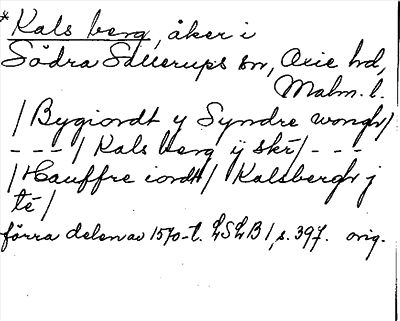 *Kals berg, åker i
Södra Sallerups sn, Oxie hd,
Malm. l.
/ Bygiordt y Syndre wongh/
- - - / Kals berg ij skr/ - - -
/ Hauffre iordh/ Kalsbergh j
té/
förra delen av 1570-t. LSLB 1, s. 397. orig.